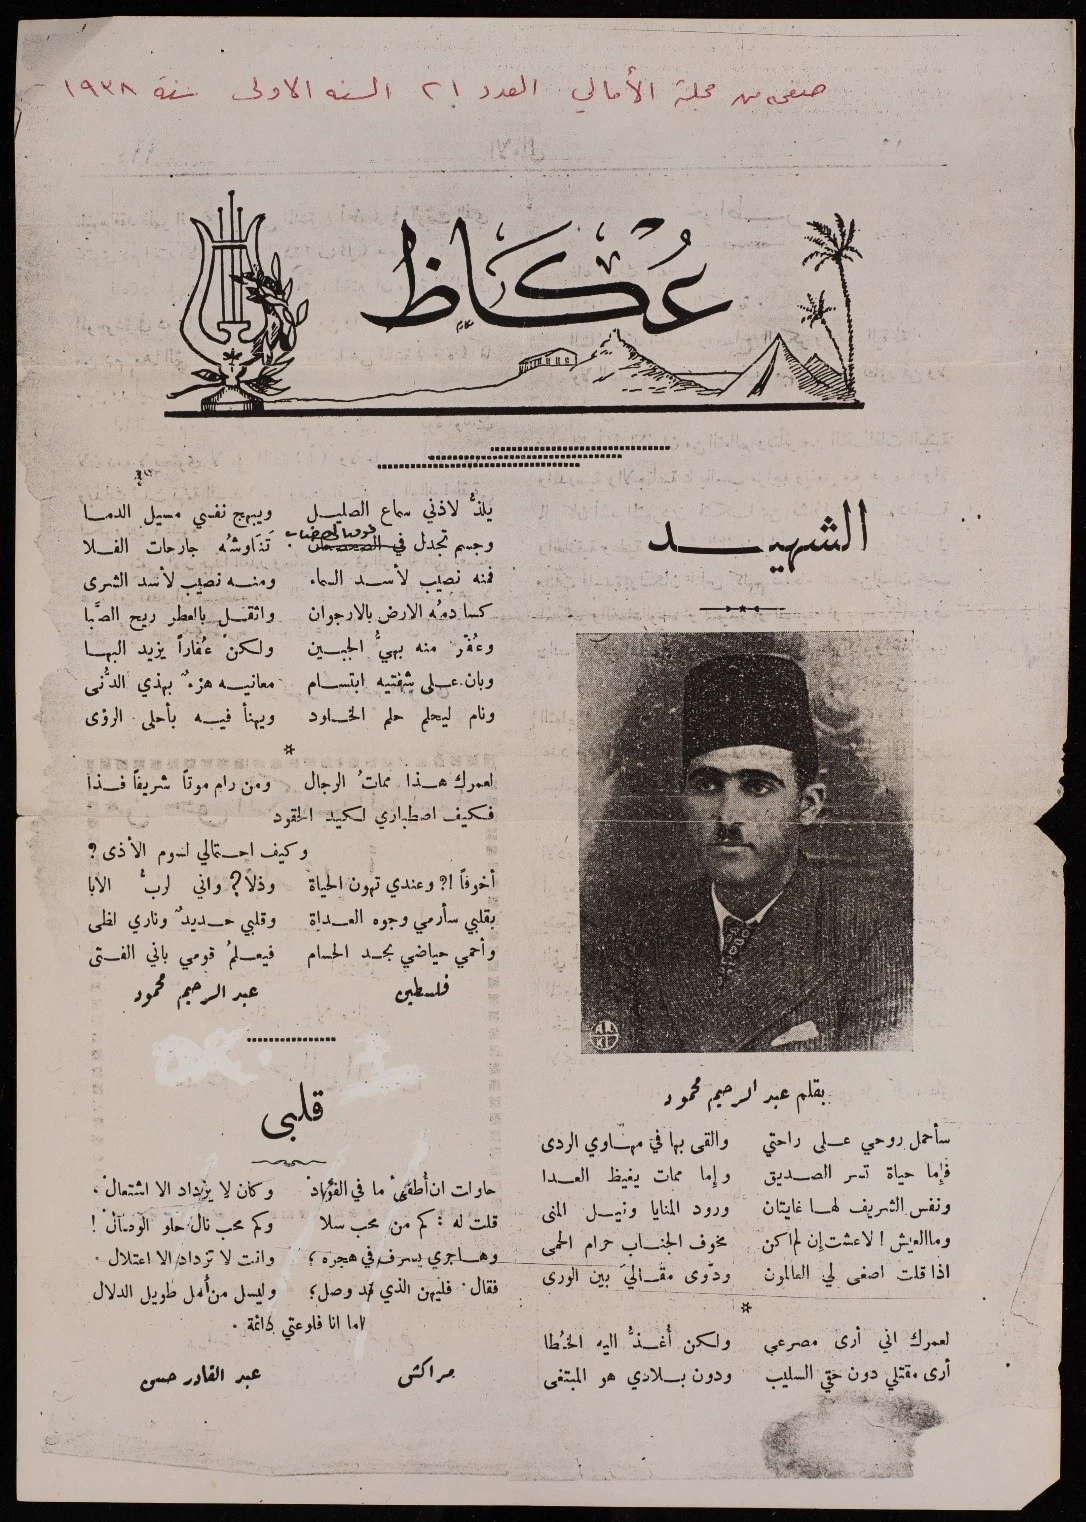 صفحه من مجلة الأمالي العدد ٢١ السنه الاولى سنة ١٩٣٨
عُكاظ
الشهيد
بقلم عبد الرحيم محمود
سأحمل روحي على راحتي والقى بها في مهاوي الردى
فإما حياة تسر الصديق وإما ممات يغيظ العدا
ونفس الشريف لها غايتان ورود المنايا ونيل المنى
وماالعيش ! لاعشت إن لم اكن مخوف الجناب حرام الحمى
اذا قلت اصغى لي العالمون ودوّى مقالي بين الورى
*
لعمرك اني أرى مصرعي ولكن أغذُّ اليه الخُطا
أرى مقتلي دون حقي السليب ودون بلادي هو المبتغى
يلذُّ لاذني سماع الصليل ويبهج نفسي مسيل الدما
فوق الهضاب
وجسم تجدل في الصحصحان تَنَاوشُه جارحات الفلا
فمنه نصيب لأسد السماء ومنه نصيب لأسد الشرى
كسا دمُه الارض بالارجوان واثقل بالعطر ريح الصَّبا
وعُفّر منه بهيُّ الجبين ولكن عُفاراً يزيد البها
وبان على شفتيه ابتسام معانيه هزءٌ بهذي الدُّنى
ونام ليحلم حلم الخلود ويهنأ فيه بأحلى الرؤى
*
لعمرك هذا مماتُ الرجال ومن رام موتاً شريفاً فذا
فكيف اصطباري لكيد الحقود
وكيف احتمالي لسوم الأذى ؟
أخوفاً !? وعندي تهون الحياة وذلا ? واني لربُّ الابا
بقلبي سأرمي وجوه العداة وقلبي حديدٌ وناري لظى
وأحمي حياضي بحد الحسام فيعلمُ قومي باني الفتى
فلسطين عبد الرحيم محمود
قلبي
حاولت ان أطفئ ما في الفؤاد وكان لا يزداد الا اشتعال .
قلت له : كم من محب سلا وكم محب نال حلو الوصال !
وهاجري يسرف في هجره ؛ وانت لا تزداد الا اعتلال .
فقال : فليهن الذي قد وصل ؛ وليسل من أمل طويل الدلال
اما انا فلوعتي دائمة .
مراكش عبد القادر حسن